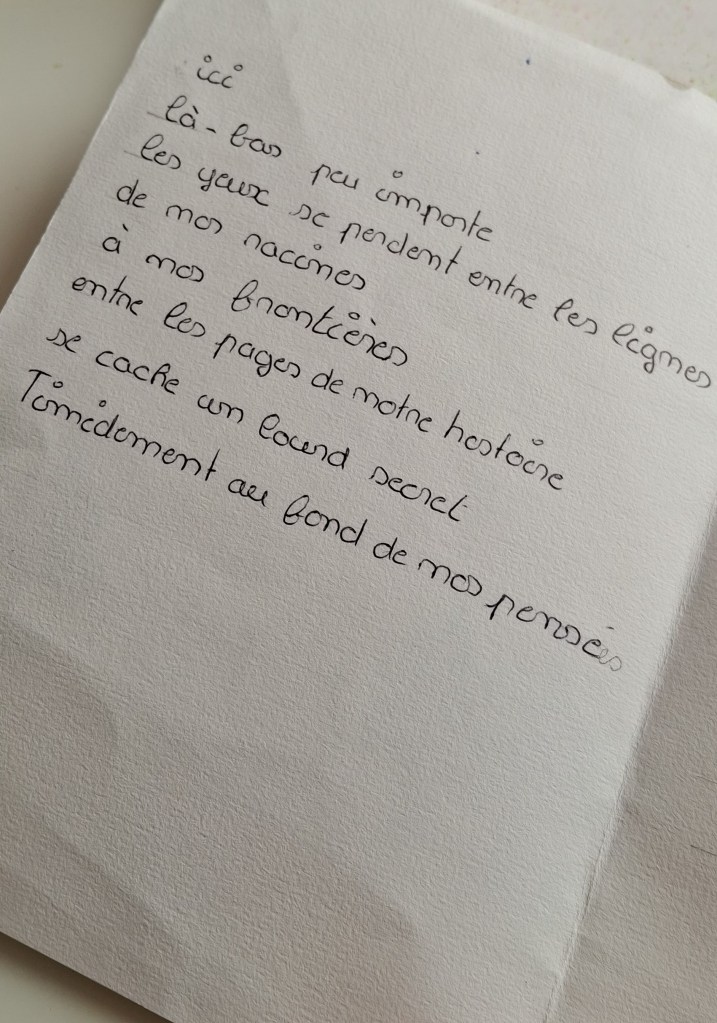 ici
là-bas peu importe
les yeux se perdent entre les lignes
de nos racines
à nos frontières
entre les pages de notre histoire
se cache un lourd secret
Timidement au fond de nos pensées